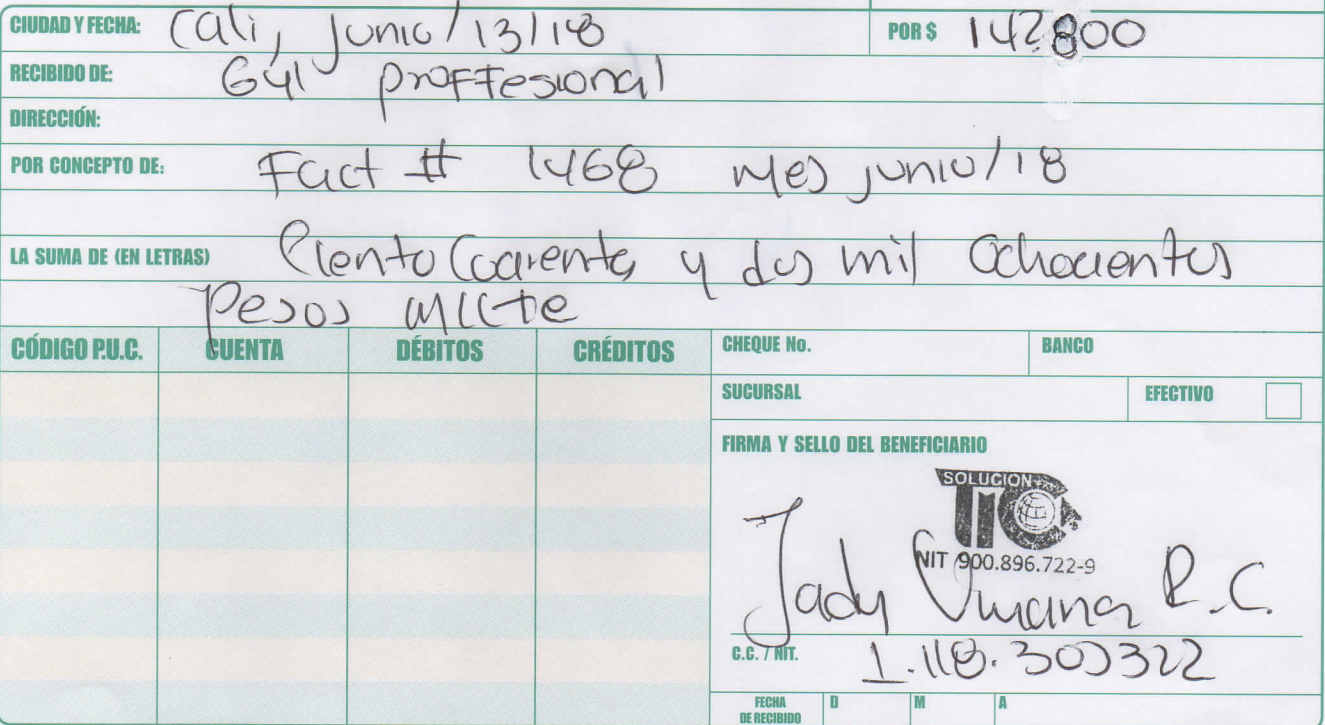 CIUDAD Y FECHA: Cali, Junio/13/18 POR $ 142800
RECIBIDO DE: G41 proffesional
DIRECCIÓN:
POR CONCEPTO DE: Fact # 1468 mes junio/18
LA SUMA DE (EN LETRAS) Ciento Coarenta y dos mil Ochocientos
pesos m/cte
CÓDIGO P.U.C. CUENTA DÉBITOS CRÉDITOS CHEQUE No. BANCO
SUCURSAL EFECTIVO
FIRMA Y SELLO DEL BENEFICIARIO
SOLUCION
TIC
NIT 900.896.722-9
Jady Viviana R.C.
C.C. / NIT. 1.118.303322
FECHA DE RECIBIDO D M A